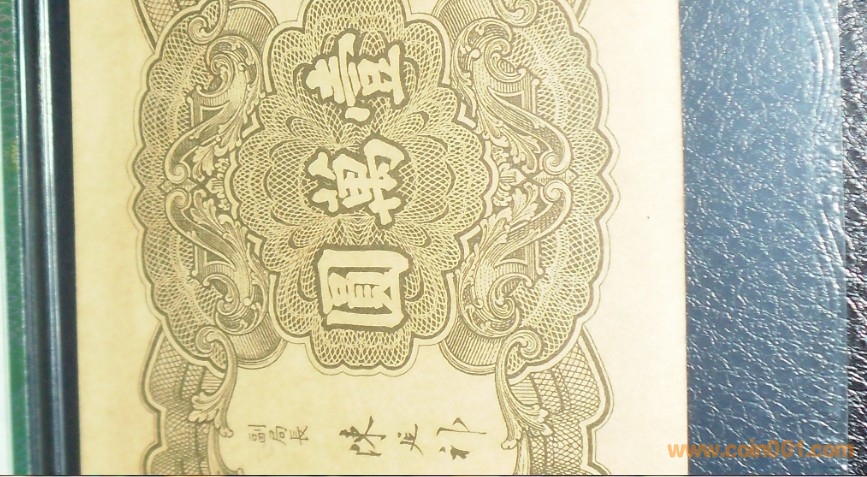 壹萬圓
副局長
陳延祚
www.coin001.com